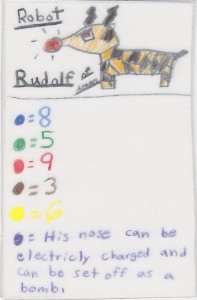 Robot
Rudolf
= 8
= 5
= 9
= 3
= 6
= His nose can be
electricly charged and
can be set off as a
bomb.